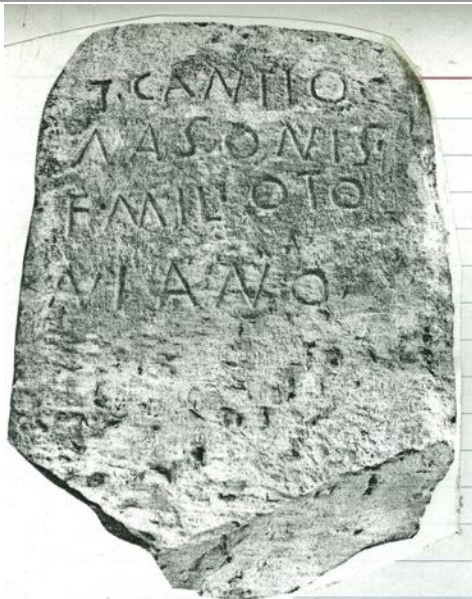 T·CANTIO
NASONIS·
F·MIL·OTO
NIANO